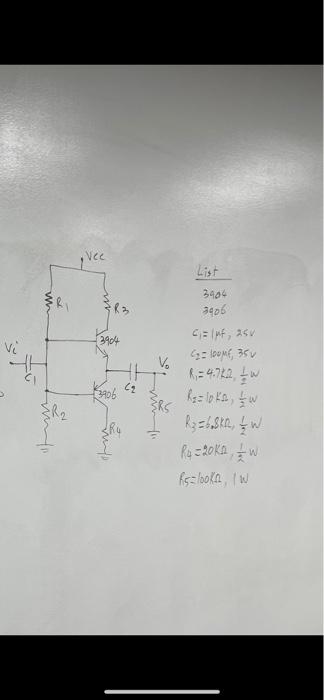 Vcc
R1
R3
3904
Vi
C1
Vo
3906
C2
R2
R4
R5
List
3904
3906
C1=1μf, 25V
C2=100μf, 35V
R1=4.7kΩ, 1/2 W
R2=10KΩ, 1/2 W
R3=6.8KΩ, 1/2 W
R4=20KΩ, 1/2 W
R5=100KΩ, 1W